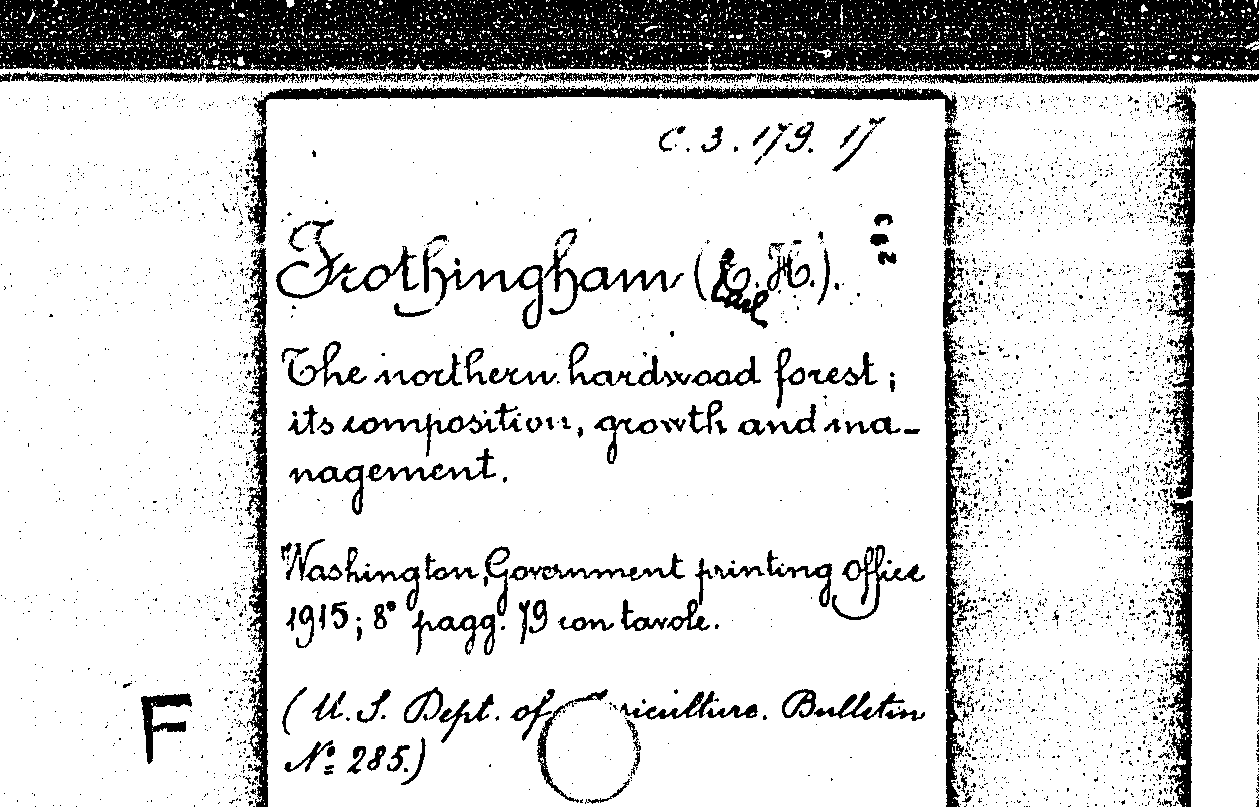 C. 3. 179. 17
293
Frothingham (E. H.).
Earl
The northern hardwood forest;
its composition, growth and ma-
nagement.
Washington, Government printing office
1915; 8° pagg. 79 con tavole.
(U. S. Dept. of Agriculture. Bulletin
Nº 285.)
F